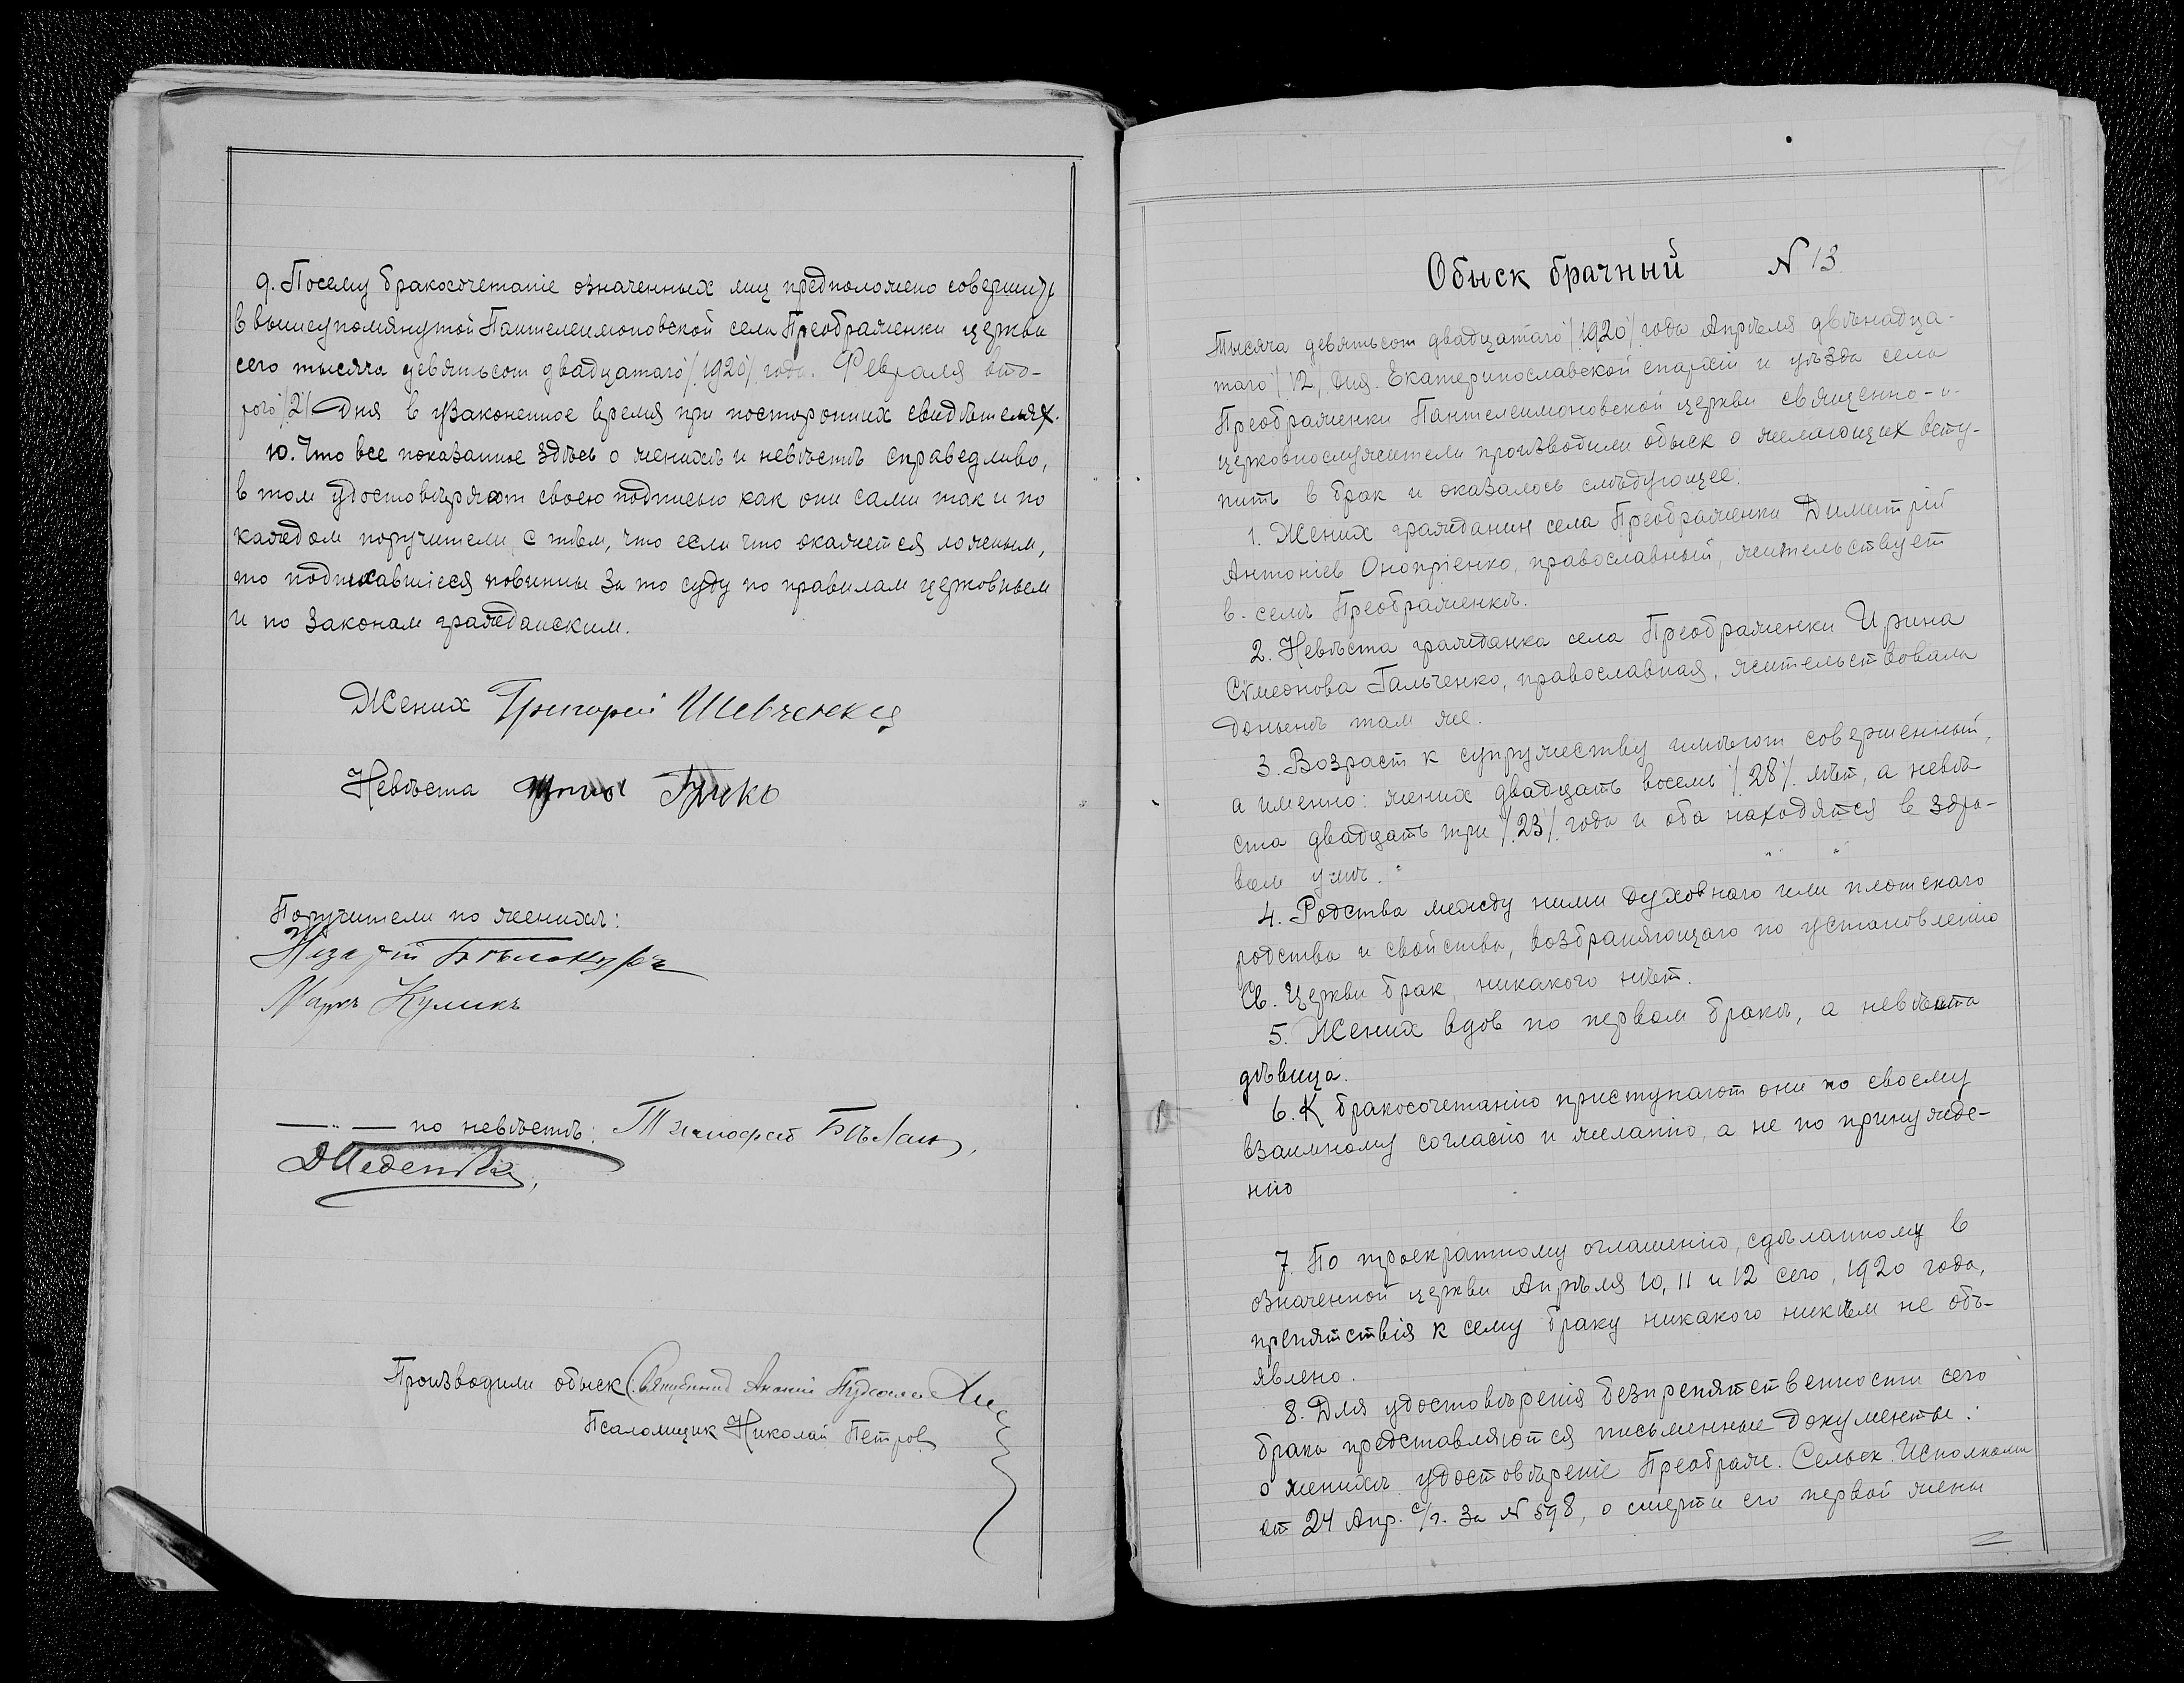 9. Посему бракосочетаніе означенных лиц предположено совершить
в вышеупомянутой Пантелеимоновской села Преображенки церкви
сего тысяча девятьсот двадцатаго /1920/ года. Февраля вто-
рого /2/ дня в узаконенное время при посторонних свидѣтелях.
10. Что все показанное здѣсь о женихѣ и невѣстѣ справедливо,
в том удостовѣряют своею подписью как они сами так и по
каждом поручители, с тѣм, что если что окажется ложным,
то подписавшіеся повинны за то суду по правилам церковным
и по законам гражданским.
Жених Григорей Шевченко
Невѣста
Поручители по женихѣ:
Назарій Бѣлокуръ
Маркъ Куликъ
— " — по невѣстѣ: Тимофей Бѣлан
Производили обыск: Священник
Псаломщик Николай Петров
Обыск брачный N 13.
Тысяча девятьсот двадцатаго /1920/ года Апрѣля двѣнадца-
таго /12/ дня. Екатеринославской епархіи и уѣзда села
Преображенки Пантелеимоновской церкви священно-и-
церковнослужители производили обыск о желающих всту-
пить в брак и оказалось слѣдующее:
1. Жених гражданин села Преображенки Димитрій
Антоніев Онопріенко, православный, жительствует
в селѣ Преображенкѣ.
2. Невѣста гражданка села Преображенки Ирина
Сѵмеонова Гальченко, православная, жительствовала
донынѣ там же.
3. Возраст к супружеству имѣют совершенный,
а именно: жених двадцать восемь /28/ лѣт, а невѣ-
ста двадцать три /23/ года и оба находятся в здра-
вом умѣ.
4. Родства между ними духовного или плотскаго
родства и свойства, возбраняющаго по установленію
Св. Церкви брак, никакого нѣт.
5. Жених вдов по первом бракѣ, а невѣста
дѣвица.
6. К бракосочетанію приступают они по своему
взаимному согласію и желанію, а не по принужде-
нію
7. По троекратному оглашенію, сдѣланному в
означенной церкви Апрѣля 10, 11 и 12 сего, 1920 года,
препятствія к сему браку никакого никѣм не объ-
явлено.
8. Для удостовѣренія безпрепятственности сего
брака представляются письменные документы:
о женихѣ удостовѣреніе Преображ. Сельск. Исполкома
от 24 Апр. с/г. за N 598, о смерти его первой жены